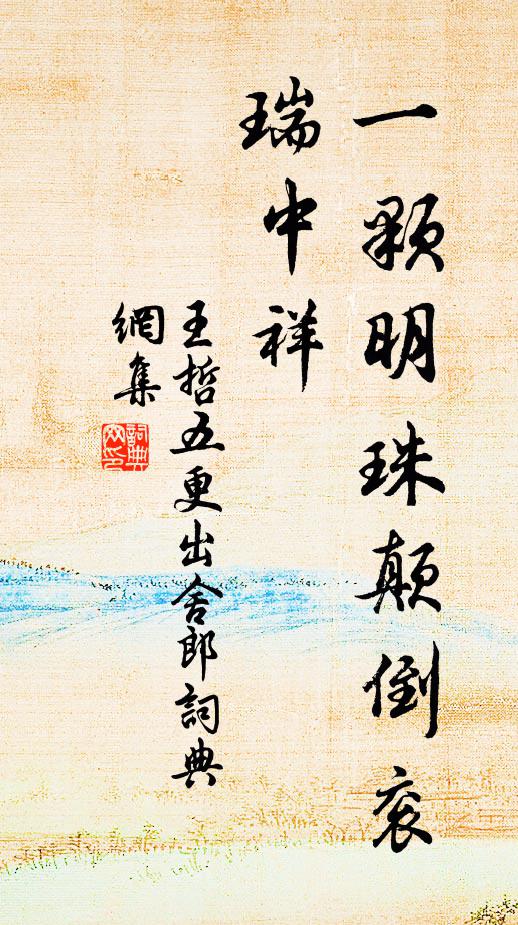 一顆明珠顛倒衮
瑞中祥
王哲五更出舍郎詞典
網集
詞典